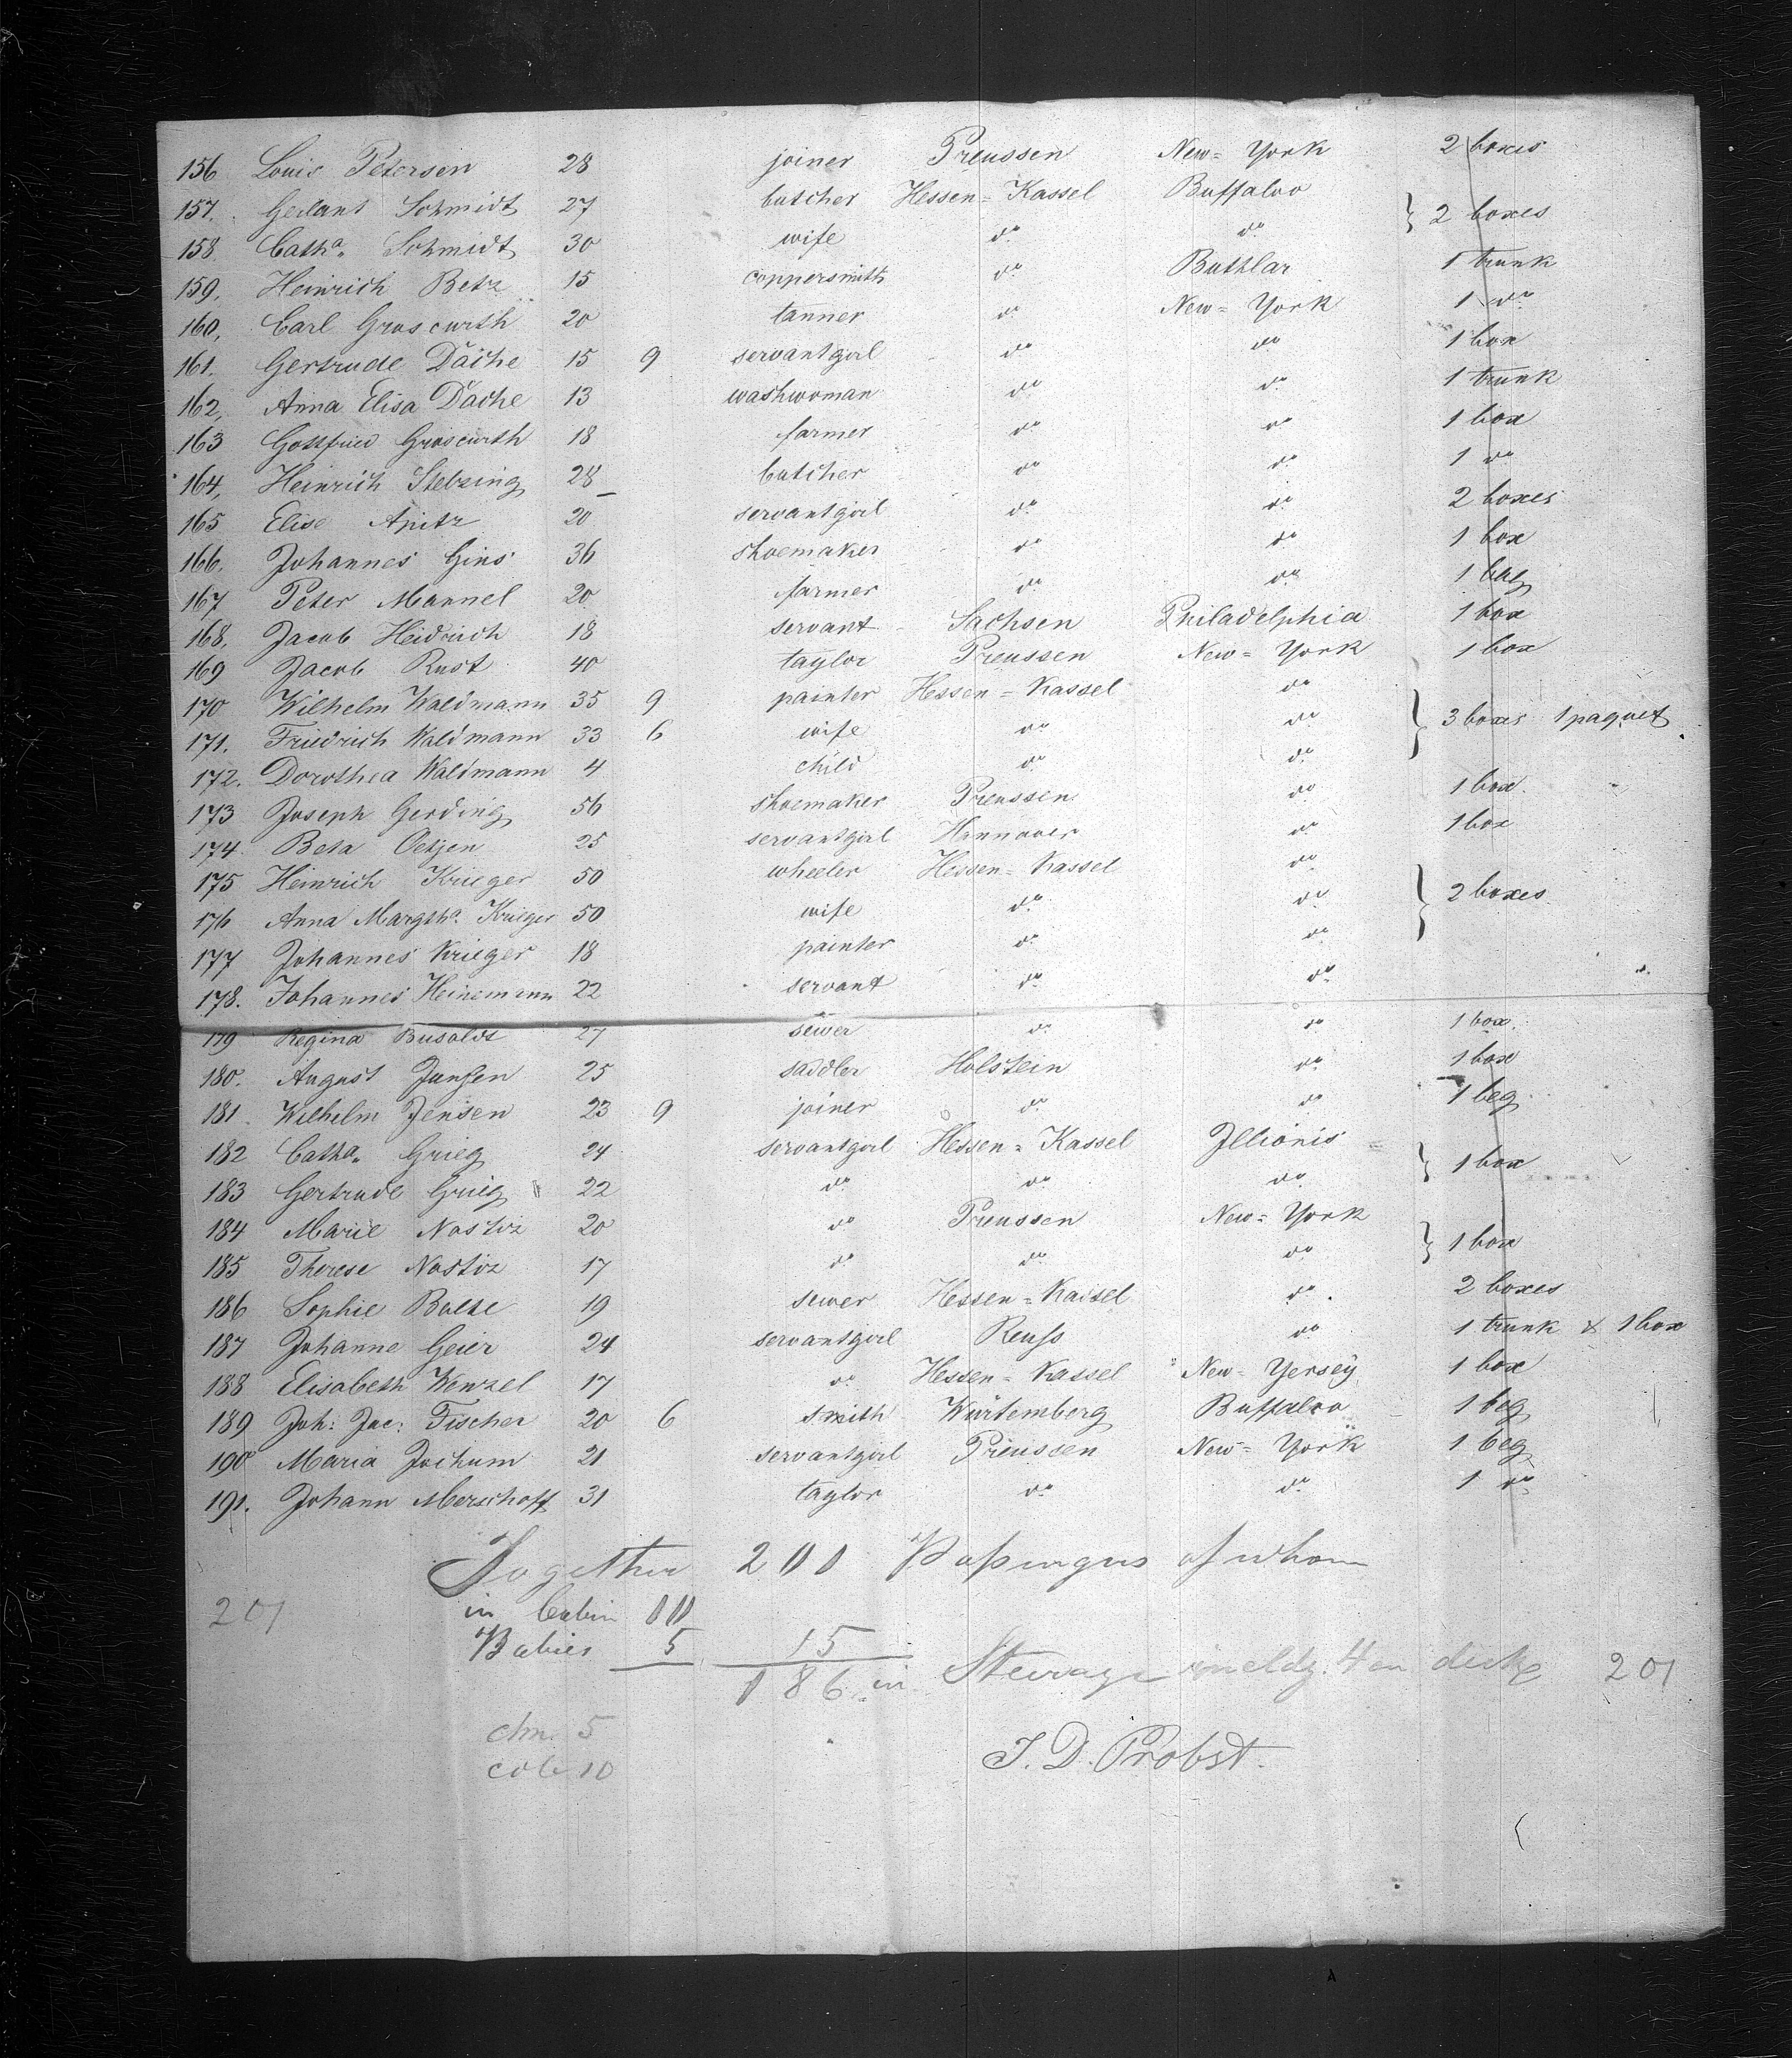 156 Louis Petersen 28 joiner Preussen New-York 2 boxes
157. Gerlant Schmidt 27 butcher Hessen-Kassel Buffaloo
} 2 boxes
158. Catha. Schmidt 30 wife do do
159. Heinrich Betz 15 coppersmith do Buthlar 1 trunk
160. Carl Groscurth 20 tanner do New-York 1 do
161. Gertrude Däche 15 9 servantgirl do do 1 box
162. Anna Elisa Däche 13 washwoman do do 1 trunk
163 Gottfried Groscurth 18 farmer do do 1 box
164. Heinrich Stebzing 28 butcher do do 1 do
165 Elise Apitz 20 servantgirl do do 2 boxes
166. Johannes Gins 36 shoemaker do do 1 box
167 Peter Mannel 20 farmer do do 1 bag
168. Jacob Heidrich 18 servant Sachsen Philadelphia 1 box
169 Jacob Rust 40 taylor Preussen New-York 1 box
170 Wilhelm Waldmann 35 9 painter Hessen-Kassel do
171. Friedrich Waldmann 33 6 wife do do } 3 boxes 1 paquet
172. Dorothea Waldmann 4 child do do
173 Joseph Gerding 56 shoemaker Preussen do 1 box
174. Beta Oetjen 25 servantgirl Hannover do 1 box
175 Heinrich Krieger 50 wheeler Hessen-Kassel do
176 Anna Margtha. Krieger 50 wife do do } 2 boxes
177 Johannes Krieger 18 painter do do
178. Johannes Heinemann 22 servant do do
179 Regina Busoldt 27 sewer do do 1 box
180. August Junsen 25 saddler Holstein do 1 box
181. Wilhelm Jensen 23 9 joiner do do 1 beg
182 Catha. Grieg 24 servantgirl Hessen-Kassel Jllionis
} 1 box
183 Gertrude Grieg 22 do do do
184 Marie Nostiz 20 do Preussen New-York
} 1 box
185 Therese Nostiz 17 do do do
186 Sophie Bolte 19 sewer Hessen-Kassel do 2 boxes
187 Johanne Geier 24 servantgirl Reuss do 1 trunk & 1 box
188 Elisabeth Wenzel 17 do Hessen-Kassel New-Yersey 1 box
189 Joh: Jac: Fischer 20 6 smith Würtemberg Buffaloo 1 beg
190 Maria Jochum 21 servantgirl Preussen New-York 1 beg
191. Johann Merschoff 31 taylor do do 1 do
Together 201 Passengers of whom
201 in Cabin 10
Babies 5 15
186 in Steerage 4 on deck 201
chn. 5
cab 10
J. D. Probst.